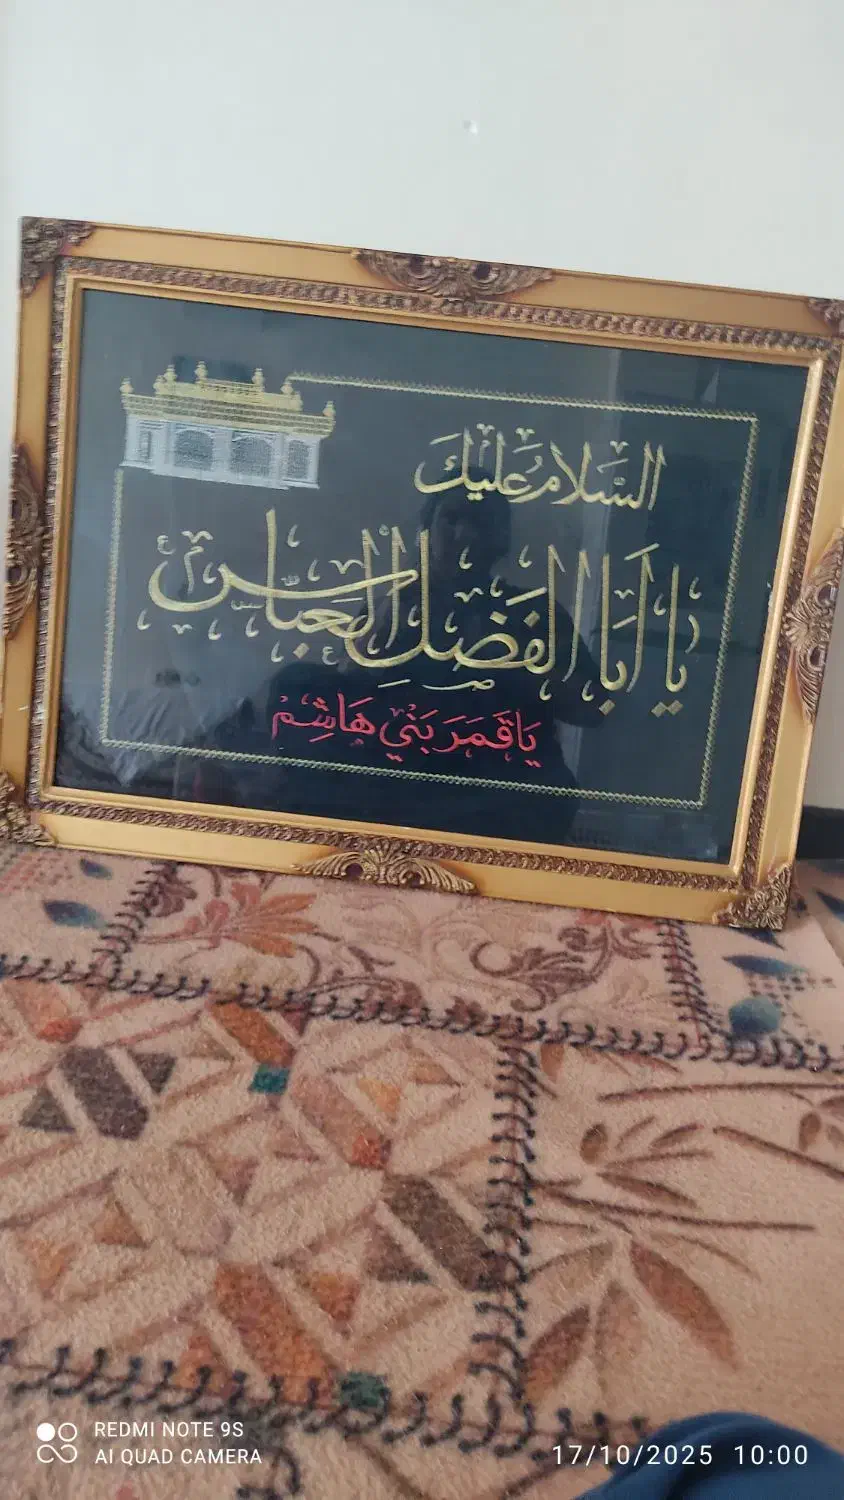 السَّلامُ عَلَيكَ
يا أَبَا الفَضلِ العَباس
يَا قَمَرَ بَني هَاشِم
REDMI NOTE 9S
AI QUAD CAMERA
17/10/2025 10:00